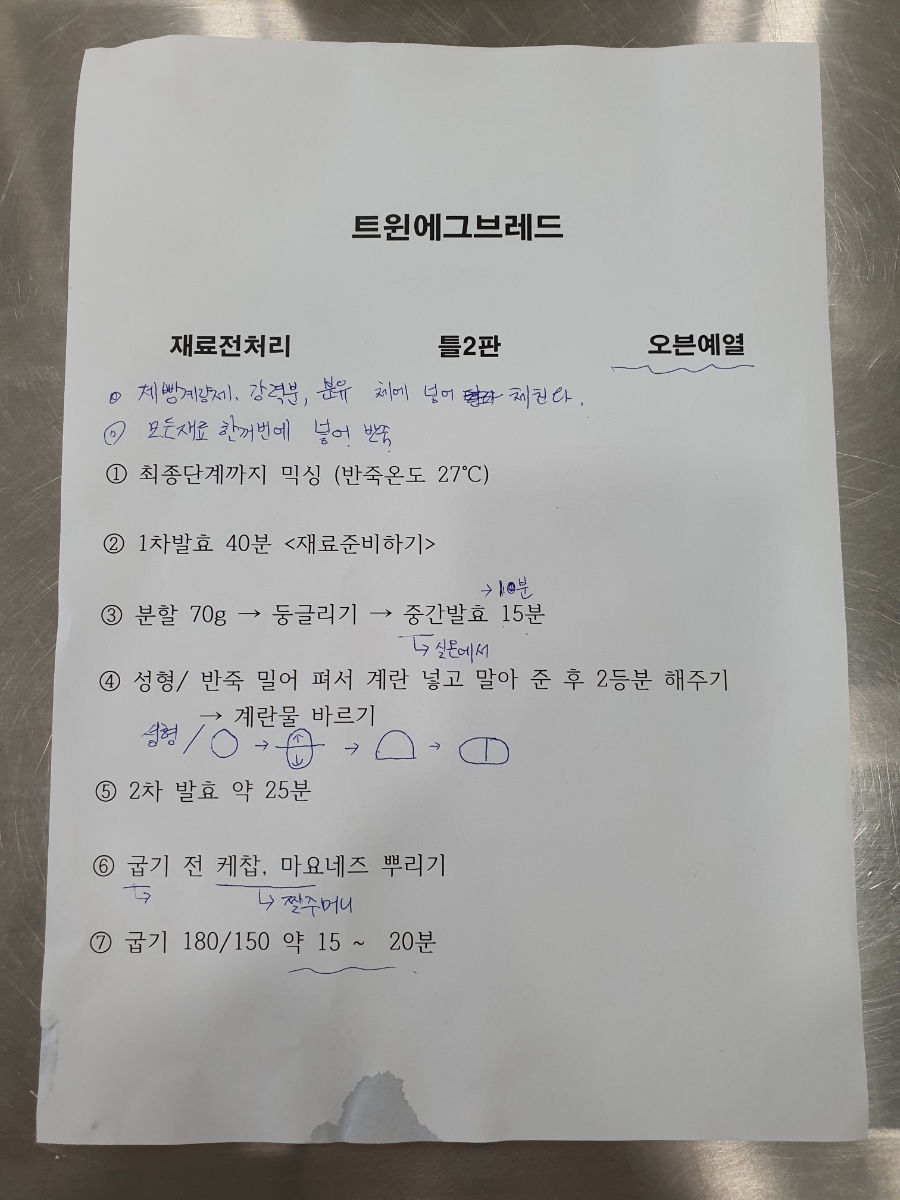 트윈에그브레드
재료전처리 틀2판 오븐예열
제빵계량제, 강력분, 분유 체에 넣어 체친다.
모든재료 한꺼번에 넣어 반죽
① 최종단계까지 믹싱 (반죽온도 27℃)
② 1차발효 40분 <재료준비하기>
→ 10분
③ 분할 70g → 둥글리기 → 중간발효 15분
↳ 실온에서
④ 성형/ 반죽 밀어 펴서 계란 넣고 말아 준 후 2등분 해주기
→ 계란물 바르기
성형 / → → →
⑤ 2차 발효 약 25분
⑥ 굽기 전 케찹, 마요네즈 뿌리기
↳ 짤주머니
⑦ 굽기 180/150 약 15 ~ 20분